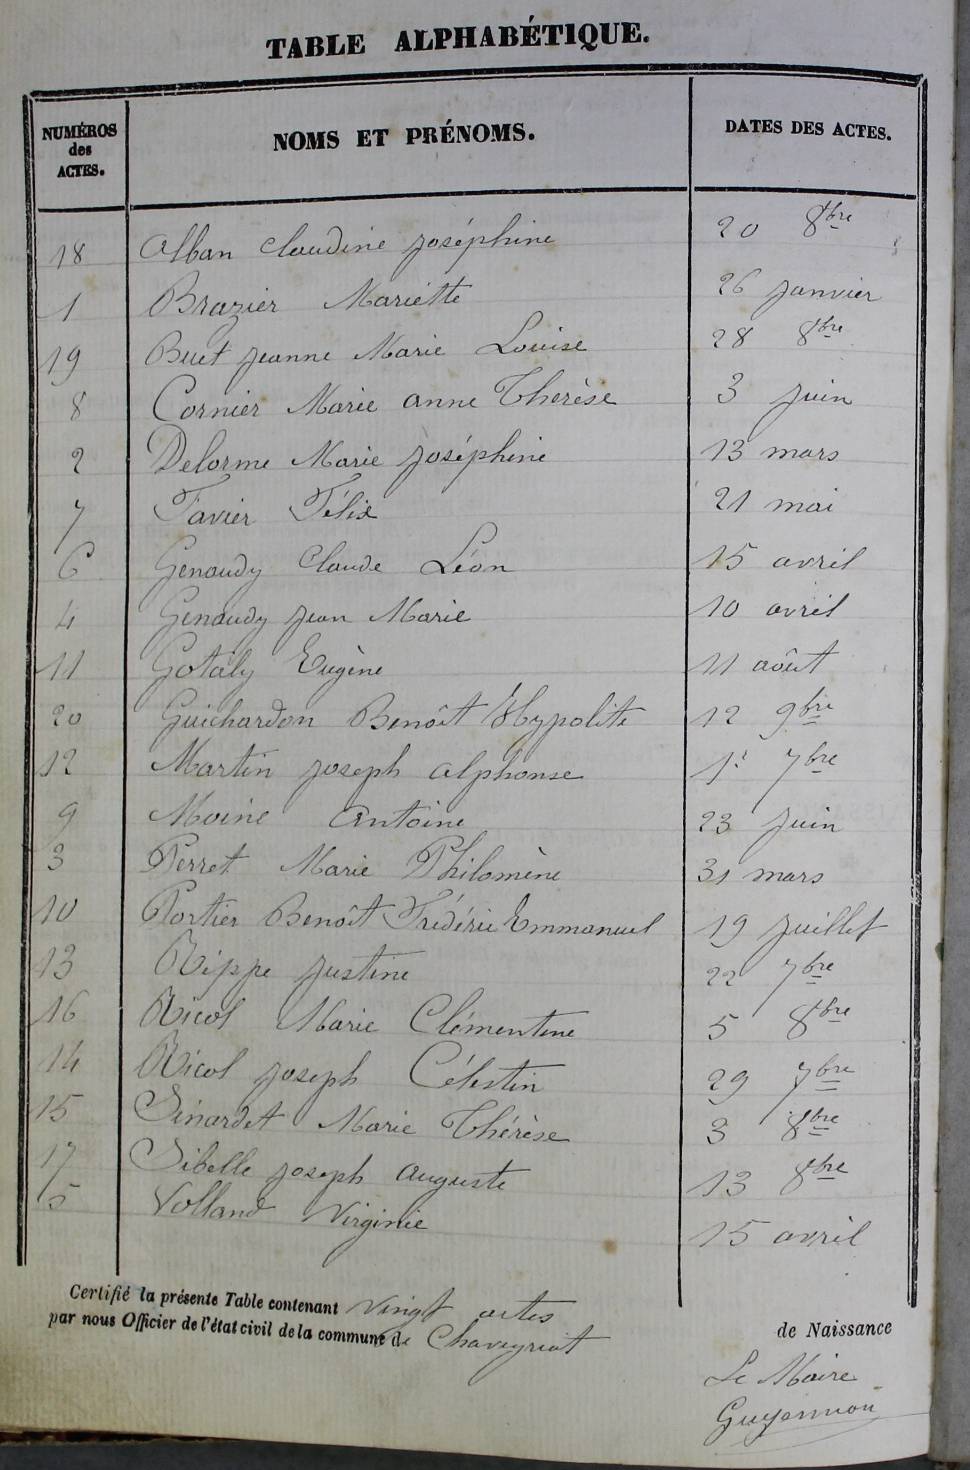 TABLE ALPHABÉTIQUE.
NUMÉROS des ACTES. NOMS ET PRÉNOMS. DATES DES ACTES.
18 Alban Claudine Joséphine 20 8bre
1 Brazier Mariette 26 Janvier
19 Buet Jeanne Marie Louise 28 8bre
8 Cornier Marie anne Thérèse 3 Juin
2 Delorme Marie Joséphine 13 mars
7 Favier Félix 21 mai
6 Genaudy Claude Léon 15 avril
4 Genaudy Jean Marie 10 avril
11 Gotaly Eugène 11 août
20 Guichardon Benoît Hypolite 12 9bre
12 Martin Joseph alphonse 1r 7bre
9 Moine Antoine 23 Juin
3 Perret Marie Philomène 31 mars
10 Portier Benoît Frédéric Emmanuel 19 Juillet
13 Rippe Justine 22 7bre
16 Ricol Marie Clémentine 5 8bre
14 Ricol Joseph Célestin 29 7bre
15 Sinardet Marie Thérèse 3 8bre
17 Sibelle Joseph auguste 13 8bre
5 Volland Virginie 15 avril
Certifié la présente Table contenant vingt actes de Naissance
par nous Officier de l'état civil de la commune de Chaveyriat
Le Maire
Guyennon